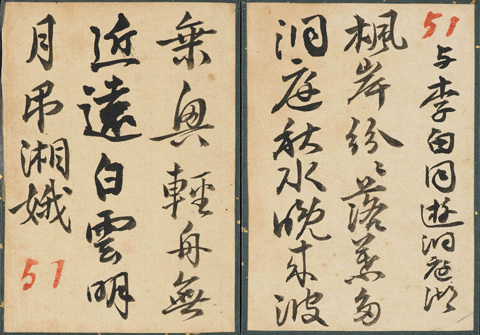 51
与李白同遊洞庭湖
楓岸紛〻落葉多
洞庭秋水晚来波
乗興輕舟無
近遠白雲明
月吊湘娥
51